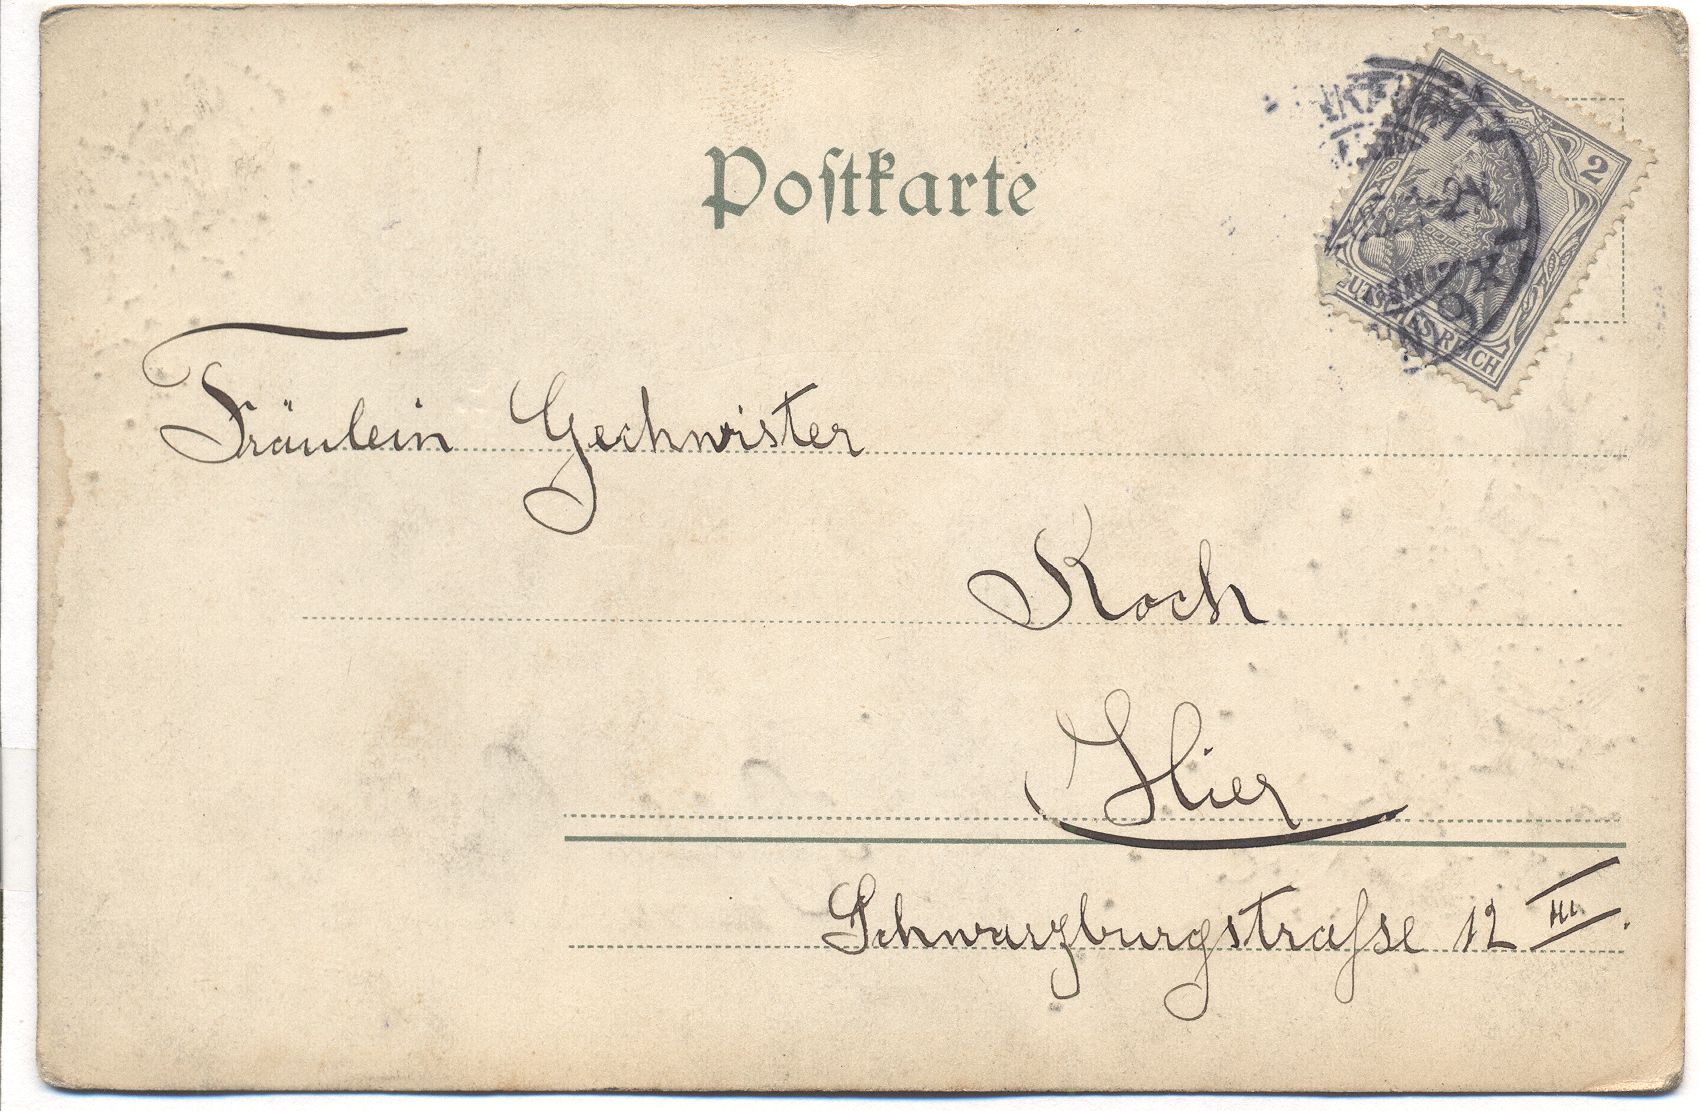 Postkarte
2
DEUTSCHES REICH
Fräulein Gechwister
Koch
Hier
Schwarzburgstraſse 12 III.